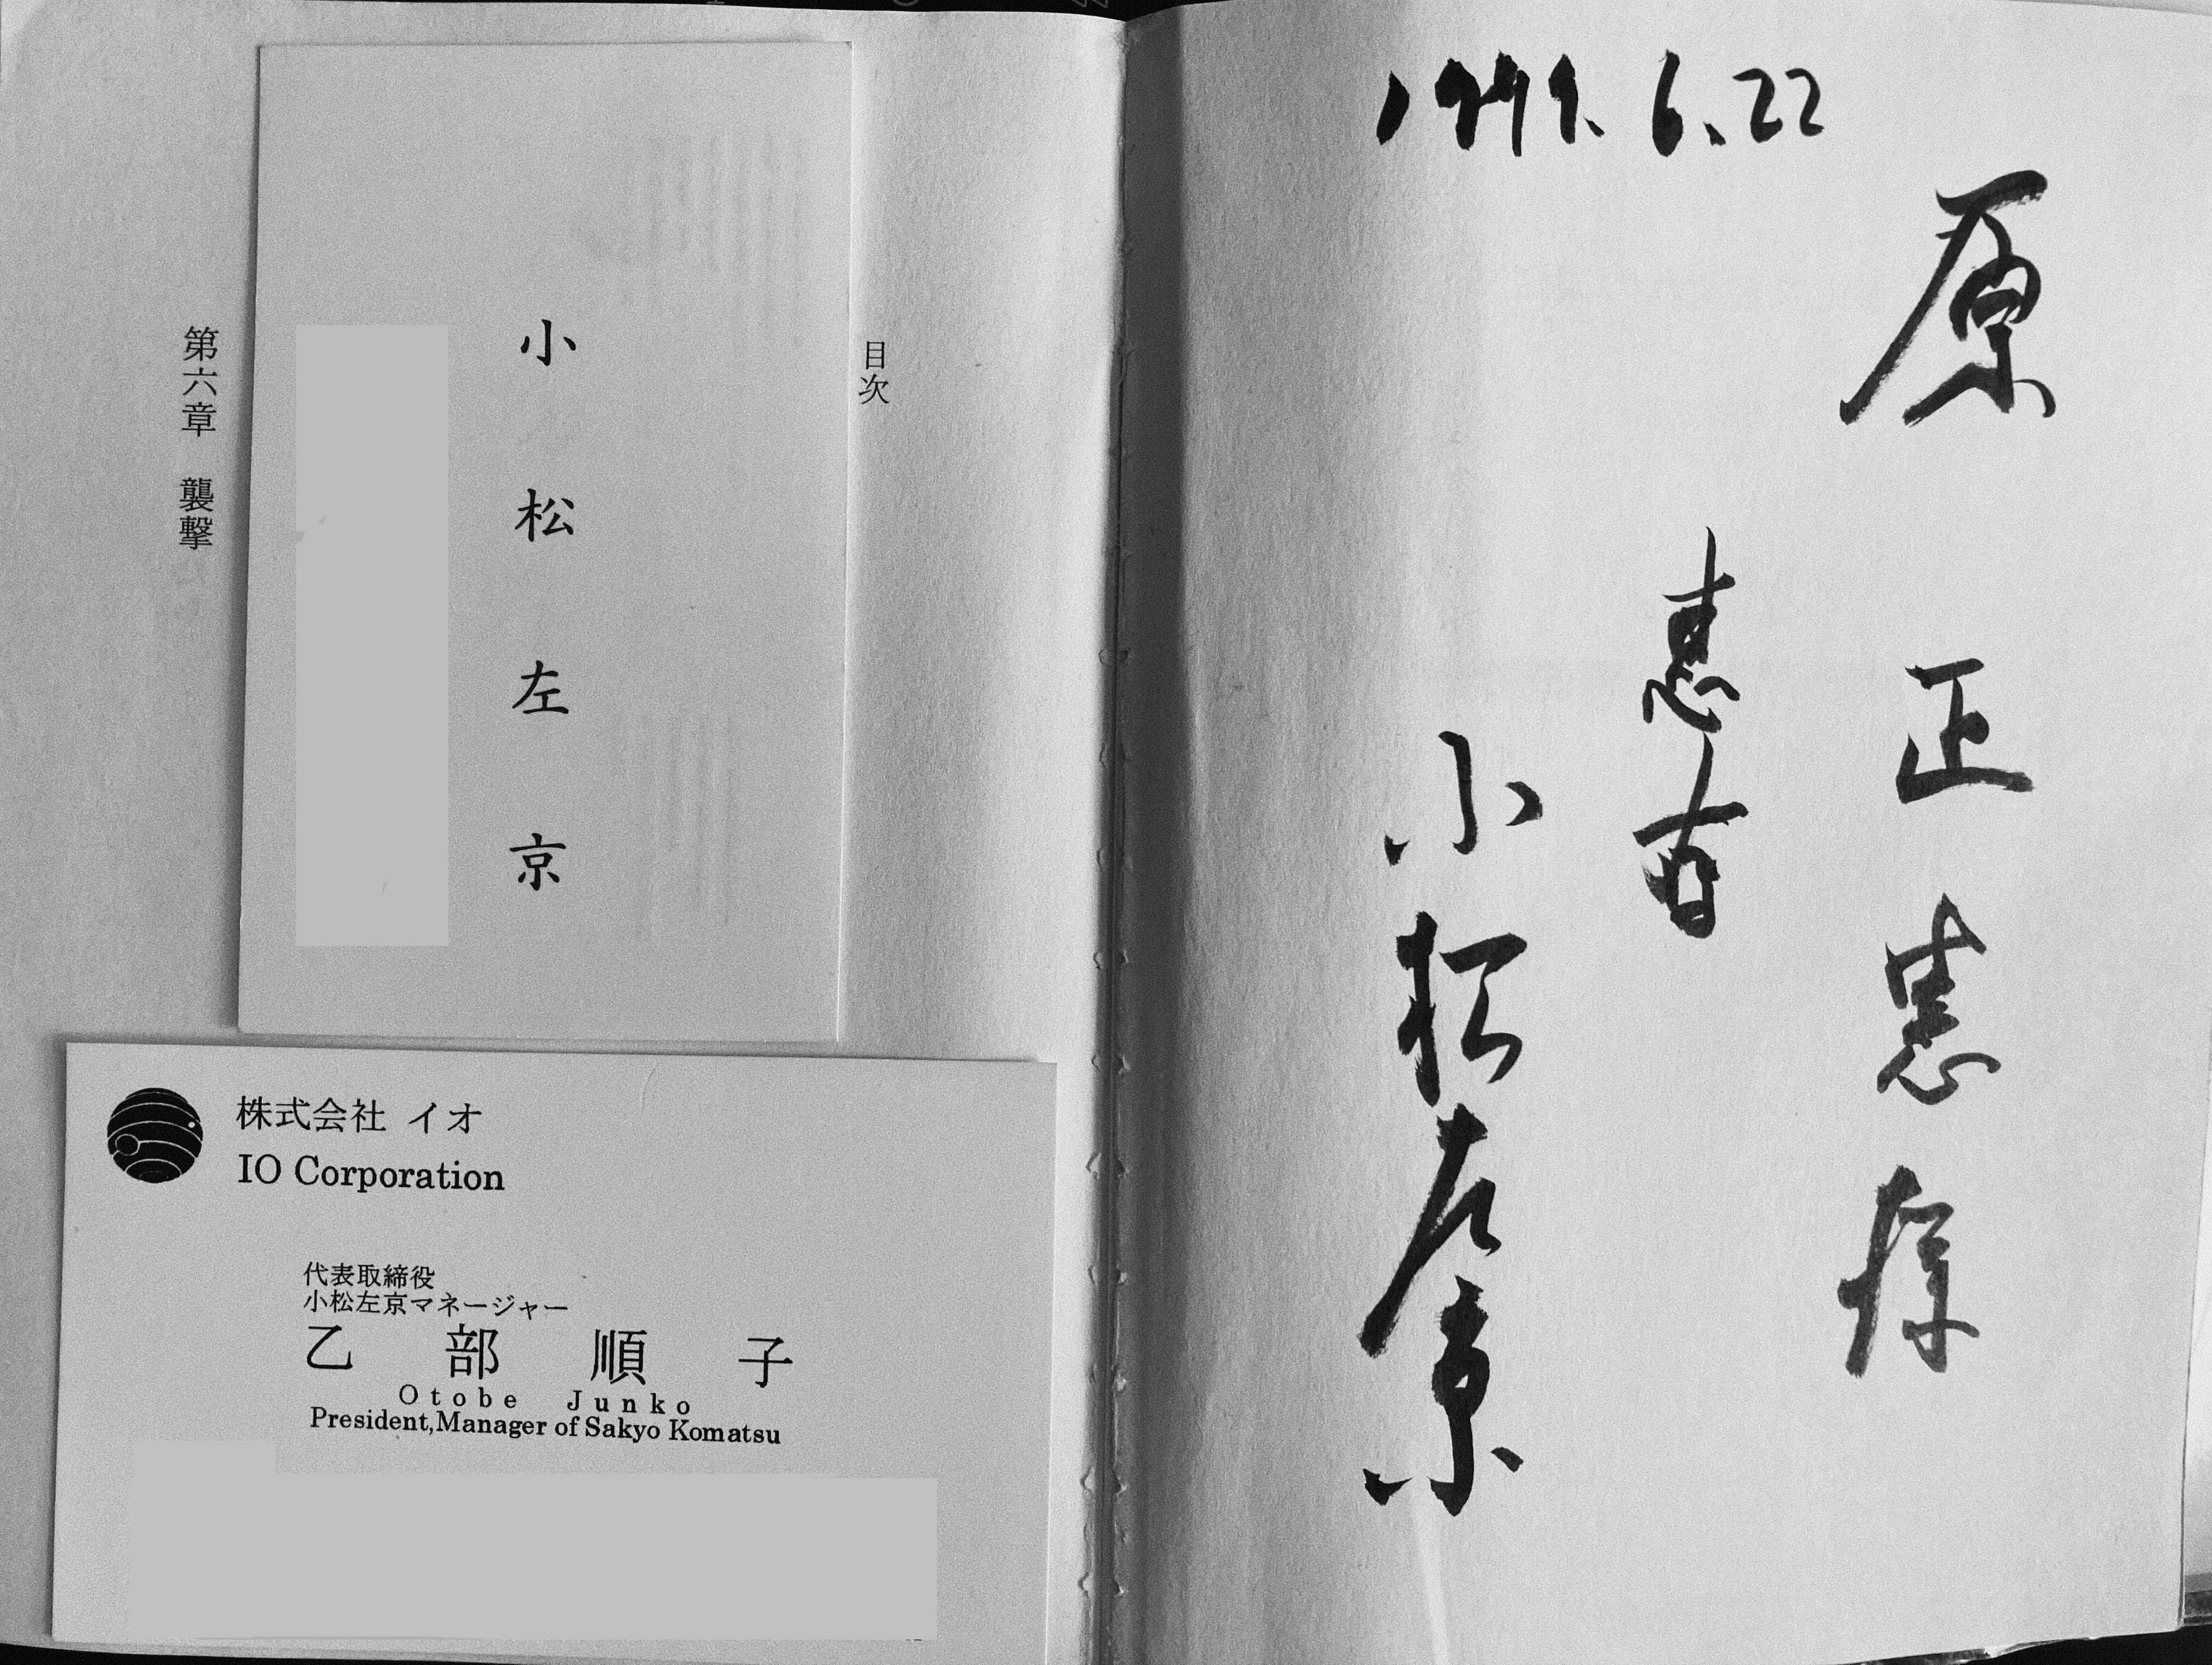 6.22
原 正 様
小松左京
目次
第六章 襲撃
小松左京
株式会社 イオ
IO Corporation
代表取締役
小松左京マネージャー
乙部順子
Otobe Junko
President,Manager of Sakyo Komatsu